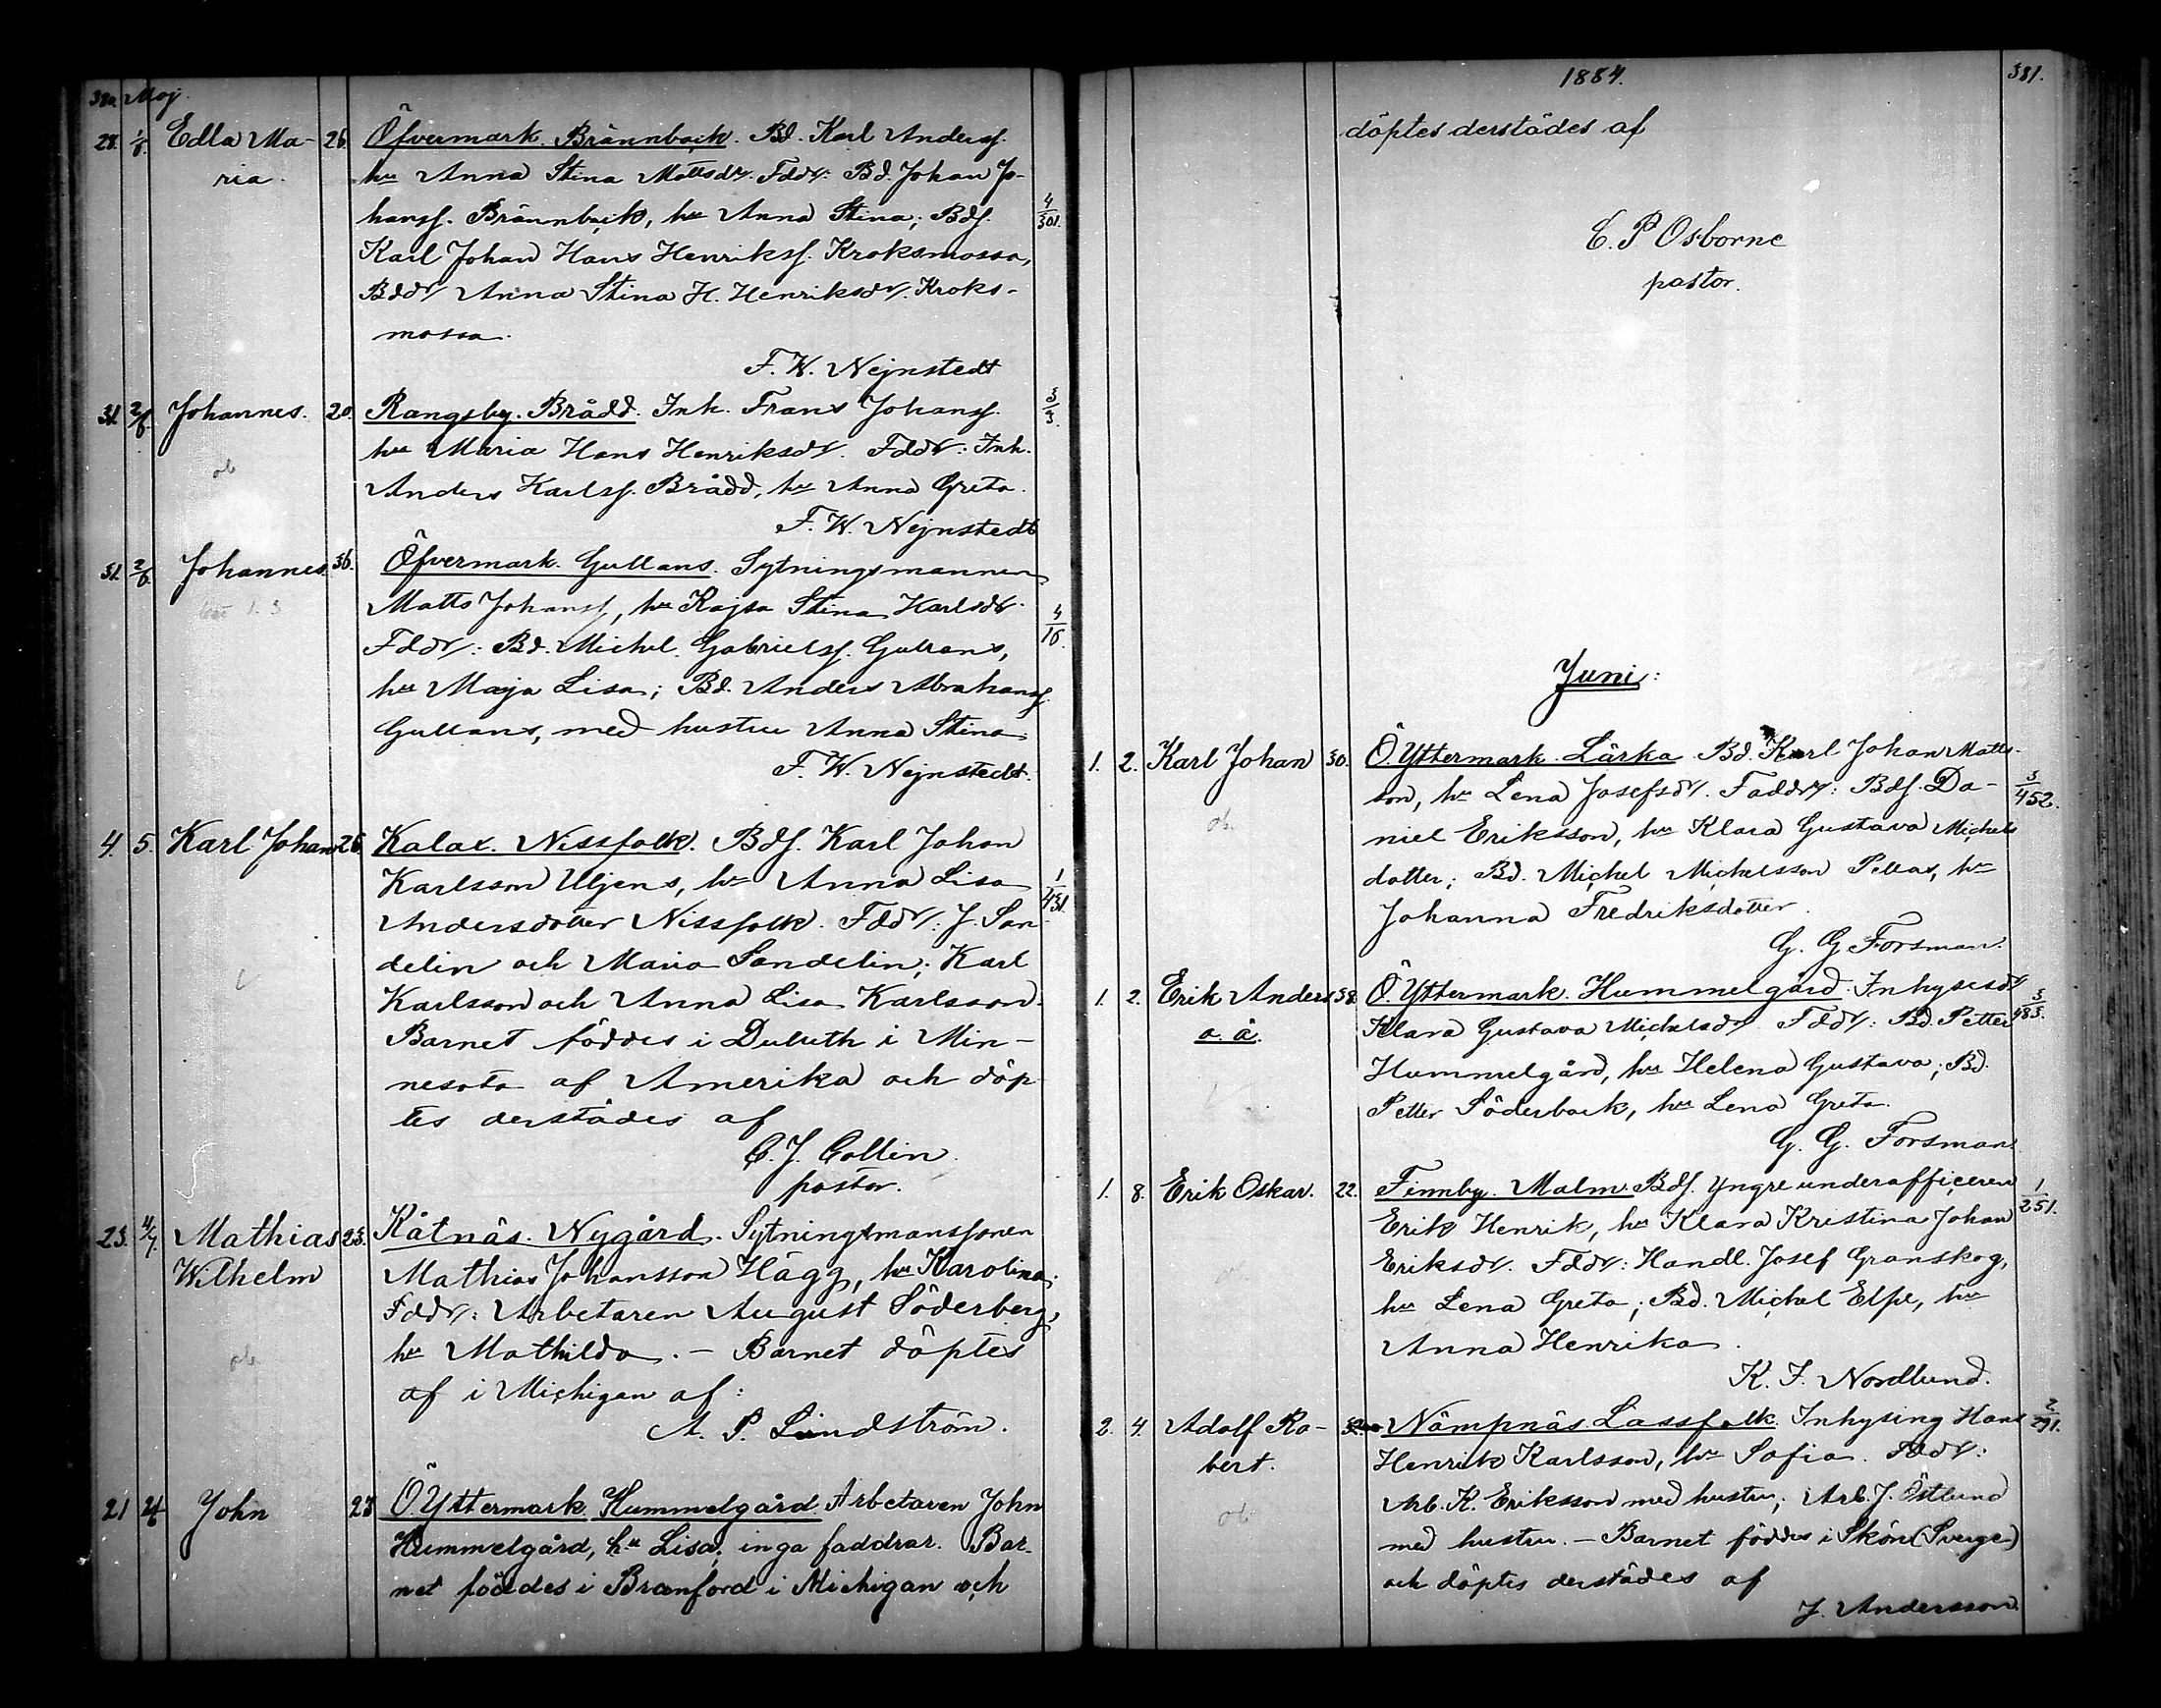 380. Maj.
28. 1/6. Edla Ma- 26. Öfvermark. Brännback. Bd. Karl Anderss.
ria. hu Anna Stina Mattsdr. Fddr: Bd. Johan Jo-
hanss. Brännback, hu Anna Stina; Bds. 4/301.
Karl Johan Hans Henrikss. Kroksmossa,
Bddr Anna Stina H. Henriksdr. Kroks-
mossa.
F. W. Nejnstedt
31. 2/6. Johannes. 20. Rangsby. Brådd. Inh. Frans Johanss. 3/3.
hu Maria Hans Henriksdr. Fddr: Inh.
ob
Anders Karlss. Brådd, hu Anna Greta.
F. W. Nejnstedt
31. 2/6. Johannes. 36. Öfvermark. Gullans. Sytningsmannen
Matts Johanss, hu Kajsa Stina Karlsdr. 4/16.
Fddr: Bd. Michel Gabrielss. Gullans,
hu Maja Lisa; Bd. Anders Abrahamss.
Gullans, med hustru Anna Stina.
F. W. Nejnstedt.
4. 5. Karl Johan 26. Kalax. Nissfolk. Bds. Karl Johan
Karlsson Uljens, hu Anna Lisa 1/431.
Andersdotter Nissfolk. Fddr: J. San-
delin och Maria Sandelin; Karl
Karlsson och Anna Lisa Karlsson.
Barnet föddes i Duluth i Min-
nesota af Amerika och döp-
tes derstädes af
C. J. Collin.
pastor.
23. 4/7. Mathias 23. Kåtnäs. Nygård. Sytningsmanssonen
Wilhelm Mathias Johansson Hägg, hu Karolina;
Fddr: Arbetaren August Söderberg,
ob
hu Mathilda. - Barnet döptes
af i Michigan af:
A. P. Lindström.
21 John 23 Ö. Yttermark. Hummelgård. Arbetaren John
Hummelgård, hu Lisa; inga faddrar. Bar-
net föddes i Branford i Michigan och
1884. 381.
döptes derstädes af
C. P Osborne
pastor.
Juni:
1. 2. Karl Johan 30. Ö. Yttermark. Lärka. Bd. Karl Johan Matts-
son, hu Lena Josefsdr. Faddr: Bds. Da- 3/452.
ob.
niel Eriksson, hu Klara Gustava Michels
dotter; Bd. Michel Michelsson Pellas, hu
Johanna Fredriksdotter.
G. G Forsman.
1. 2. Erik Anders 38. Ö. Yttermark. Hummelgård. Inhysesdr
o. ä. Klara Gustava Michelsdr Fddr: Bd. Petter 3/483.
Hummelgård, hu Helena Gustava; Bd.
Petter Söderback, hu Lena Greta.
G. G. Forsman.
1. 8. Erik Oskar. 22. Finnby. Malm. Bds. Yngre underofficeren 1/251.
Erik Henrik, hu Klara Kristina Johan
Eriksdr. Fddr: Handl. Josef Granskog,
hu Lena Greta; Bd. Michel Elpe, hu
Anna Henrika.
K. F. Nordlund.
2. 4. Adolf Ro- Nämpnäs. Lassfolk. Inhysing Hans 2/291.
bert. Henrik Karlsson, hu Sofia. Fddr:
Arb. K. Eriksson med hustru; Arb. J. Östlund
ob
med hustru. - Barnet föddes i Skön (Sverge)
och döptes derstädes af
J. Andersson.